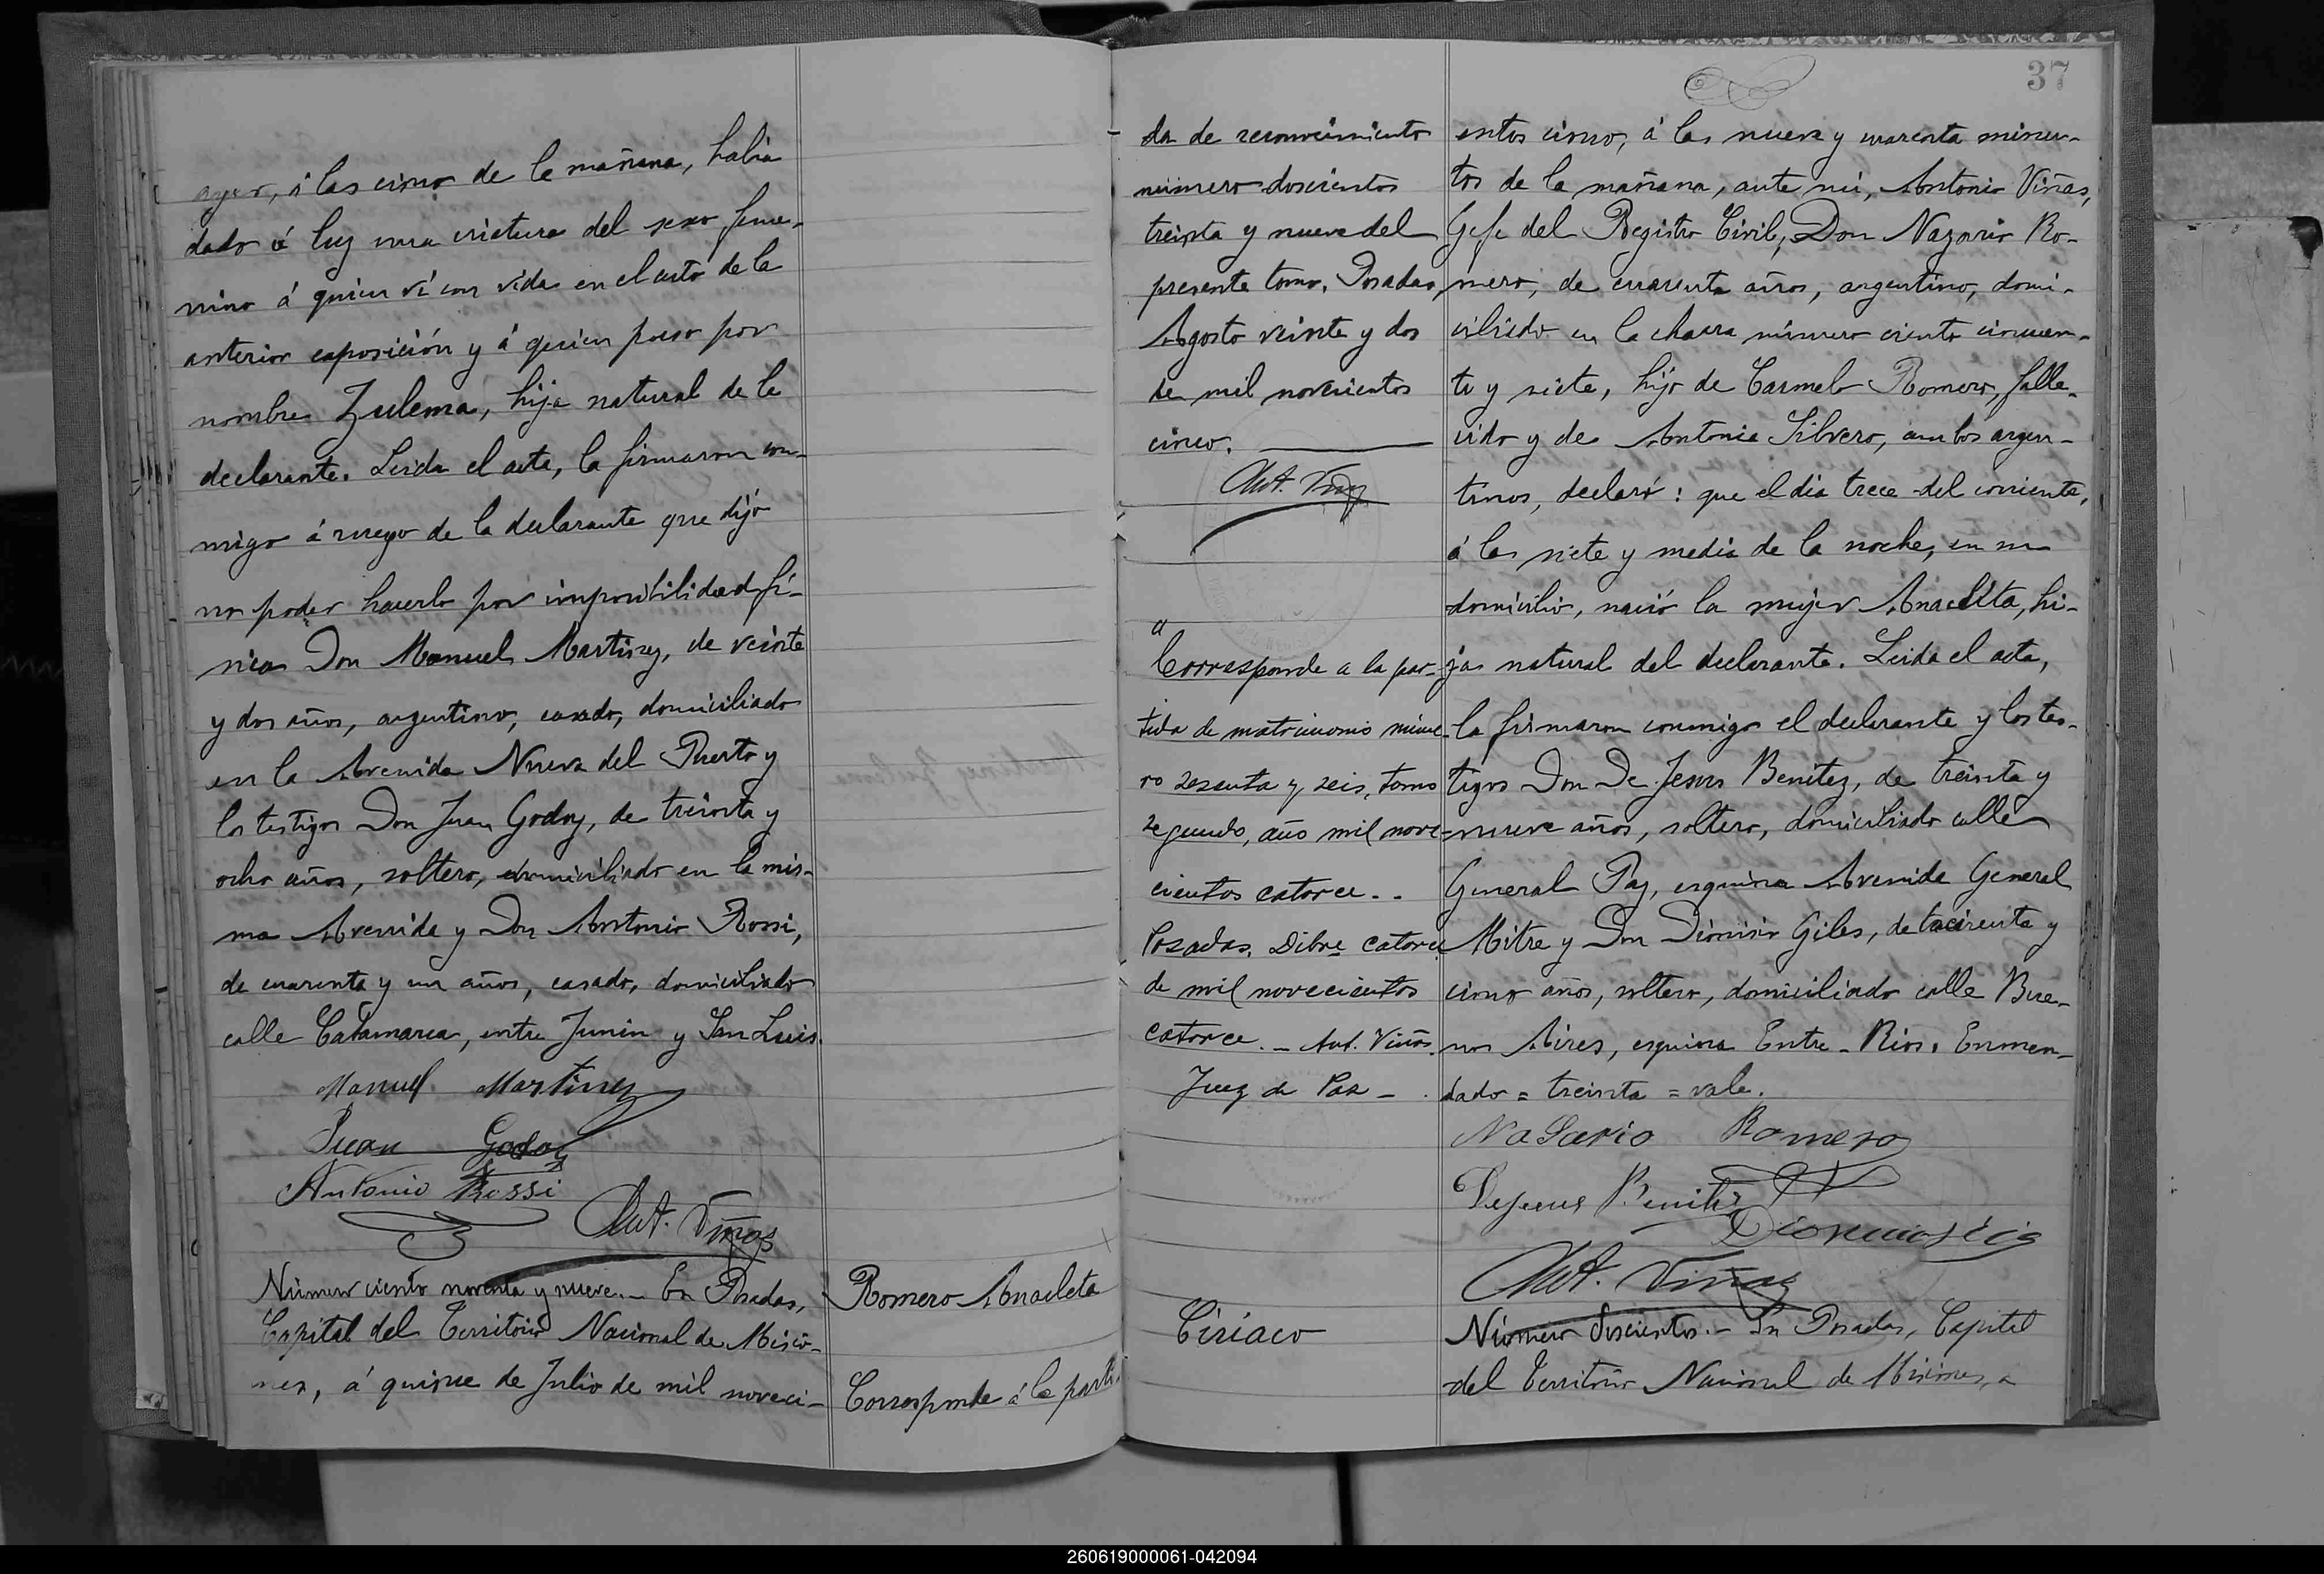 ayer, á las cinco de la mañana, había
dado á luz una criatura del sexo feme-
nino á quien ví con vida en el acto de la
anterior exposición y á quien puso por
nombre Zulema, hija natural de la
declarante. Leida el acta, la firmaron con-
migo á ruego de la declarante que dijo
no poder hacerlo por imposibilidad fí-
sica Don Manuel Martinez, de veinte
y dos años, argentino, casado, domiciliado
en la Avenida Nueva del Puerto y
los testigos Don Juan Godoy, de treinta y
ocho años, soltero, domiciliado en la mis-
ma Avenida y Don Antonio Rossi,
de cuarenta y un años, casado, domiciliado
calle Catamarca, entre Junin y San Luis.
Manuel Martinez
Juan Godoy
Antonio Rossi
Ant. Viñas
Número ciento noventa y nueve.- En Posadas,
Capital del Territorio Nacional de Misio-
nes, á quince de Julio de mil noveci-
Romero Anacleta
Corresponde á la parti-
37
da de reconocimiento
número doscientos
treinta y nueve del
presente tomo. Posadas,
Agosto veinte y dos
de mil novecientos
cinco.
Ant. Viñas
Corresponde a la par-
tida de matrimonio núme-
ro sesenta y seis, tomo
segundo, año mil nove-
cientos catorce..
Posadas, Dibre catorce
de mil novecientos
catorce.- Ant. Viñas.
Juez de Paz -
Ciríaco
entos cinco, á las nueve y cuarenta minu-
tos de la mañana, ante mí, Antonio Viñas,
Gefe del Registro Civil, Don Nazario Ro-
mero, de cuarenta años, argentino, domi-
ciliado en la chacra número ciento cincuen-
ta y siete, hijo de Carmelo Romero, falle-
cido y de Antonia Silvero, ambos argen-
tinos, declaró: que el día trece del corriente,
á las siete y media de la noche, en su
domicilio, nació la mujer Anacleta, hi-
ja natural del declarante. Leida el acta,
la firmaron conmigo el declarante y los tes-
tigos Don De Jesus Benitez, de treinta y
nueve años, soltero, domiciliado calle
General Paz, esquina Avenida General
Mitre y Don Dionisio Giles, de treinta y
cinco años, soltero, domiciliado calle Bue-
nos Aires, esquina Entre-Rios. Enmen-
dado = treinta = vale.
Nasario Romero
Dejesus Benitez
Ant. Viñas
Número doscientos.- En Posadas, Capital
del Territorio Nacional de Misiones, a
260619000061-042094